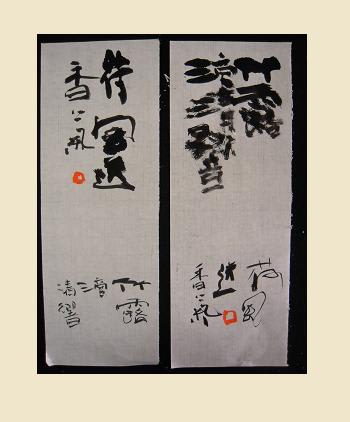 竹露
滴清響
荷風
送
香氣
荷風送
香氣
竹露
滴
清響